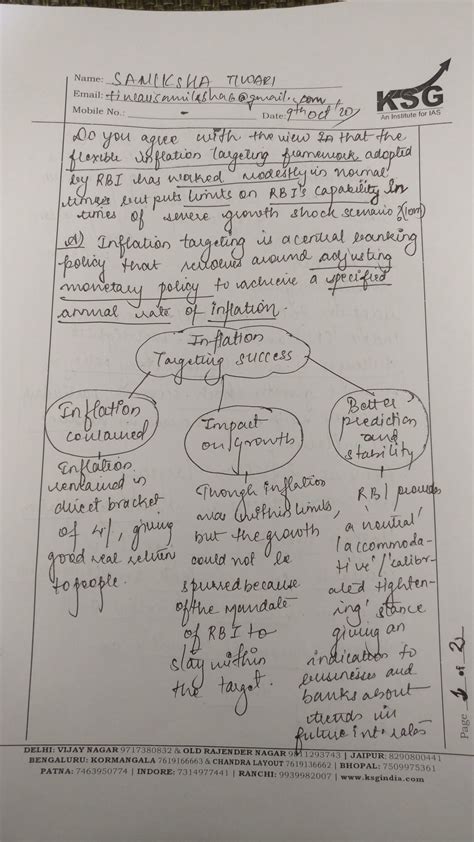 Name: SAMIKSHA TIWARI
Email: tiwarisamiksha6@gmail.com
Mobile No.: -
Date: 9th Oct '20
KSG
An Institute for IAS
Do you agree with the view that the
flexible inflation Targeting framework adopted
by RBI has worked modestly in normal
times but puts limits on RBI's capability in
times of severe growth shock scenario? (10m)
A) Inflation targeting is a central banking
policy that revolves around adjusting
monetary policy to achieve a specified
annual rate of inflation.
Inflation
Targeting success
Inflation
contained
Inflation
remained in
direct bracket
of 4%, giving
good real return
to people.
Impact
on growth
Though inflation
was within limits,
but the growth
could not be
spurred because
of the mandate
of RBI to
stay within
the target.
Better
prediction
and
stability
RBI provides
a 'neutral'
'accommoda-
tive'/'calibr-
ated tighten-
ing' stance
giving an
indication to
businesses and
banks about
trends in
future int rates
Page 1 of 2
DELHI: VIJAY NAGAR 9717380832 & OLD RAJENDER NAGAR 9811293743 | JAIPUR: 8290800441
BENGALURU: KORMANGALA 7619166663 & CHANDRA LAYOUT 7619136662 | BHOPAL: 7509975361
PATNA: 7463950774 | INDORE: 7314977441 | RANCHI: 9939982007 | www.ksgindia.com